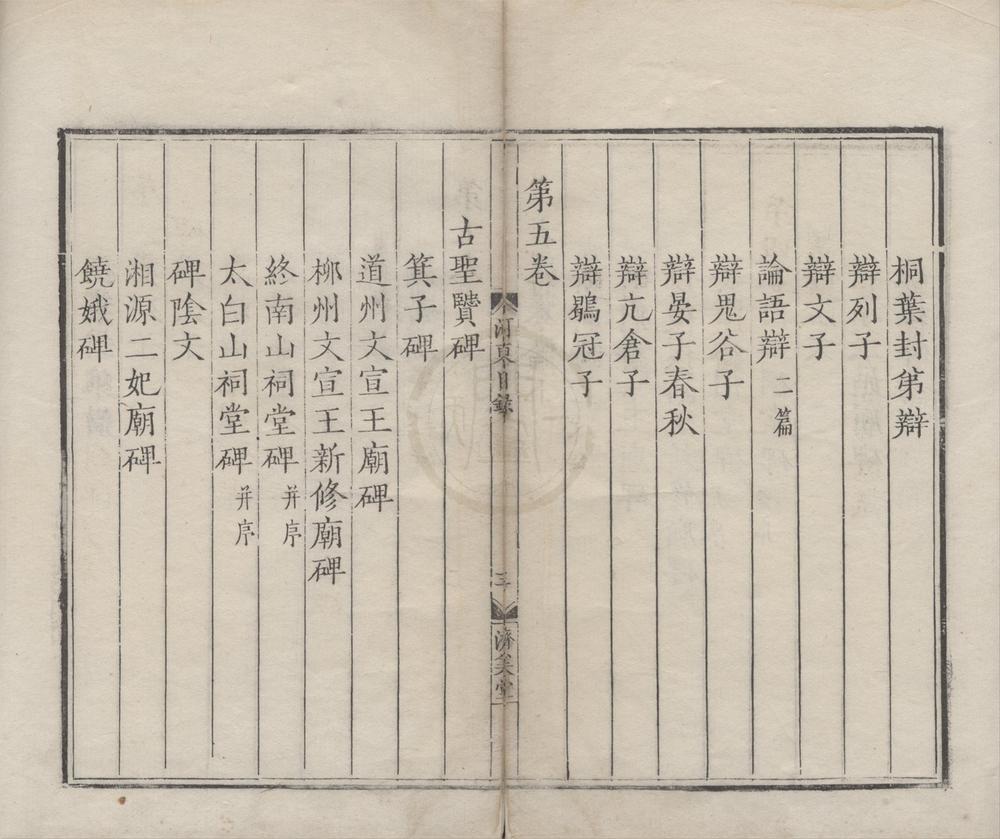 桐葉封第辯
辯列子
辯文子
論語辯二篇
辯鬼谷子
辯晏子春秋
辯亢倉子
辯鶡冠子
第五卷
河東目錄
三
濟美堂
古聖贒碑
箕子碑
道州文宣王廟碑
柳州文宣王新修廟碑
終南山祠堂碑并序
太白山祠堂碑并序
碑陰文
湘源二妃廟碑
饒娥碑